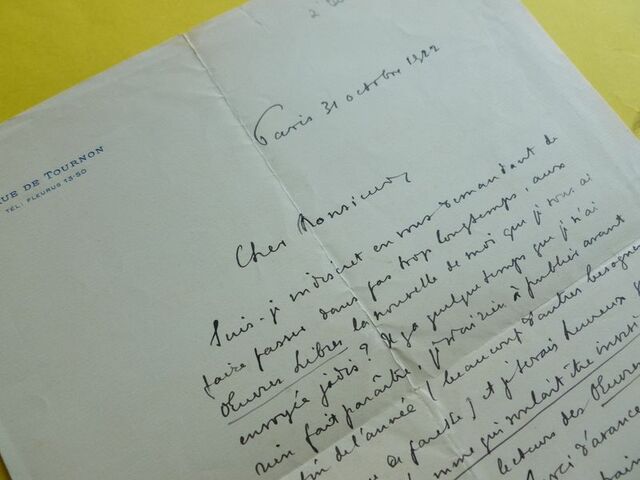 2
RUE DE TOURNON
TEL: FLEURUS 13-50
Paris 31 octobre 1922
Cher Monsieur
Suis-je indiscret en vous demandant de
faire passer dans pas trop longtemps, aux
Œuvres Libres la nouvelle de moi que je vous ai
envoyée jadis? Il y a quelque temps que je n'ai
rien fait paraître, je n'ai rien à publier avant
fin de l'année (beaucoup d'autres besognes
et je serais heureux
mme qui voulait être
lecteurs des Œuvres
merci d'avance